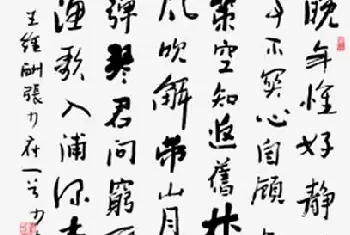 晚年惟好靜
事不關心自顧
策空知返舊林
風吹解帶山月
彈琴君問窮
漁歌入浦深
王維酬張少府一首